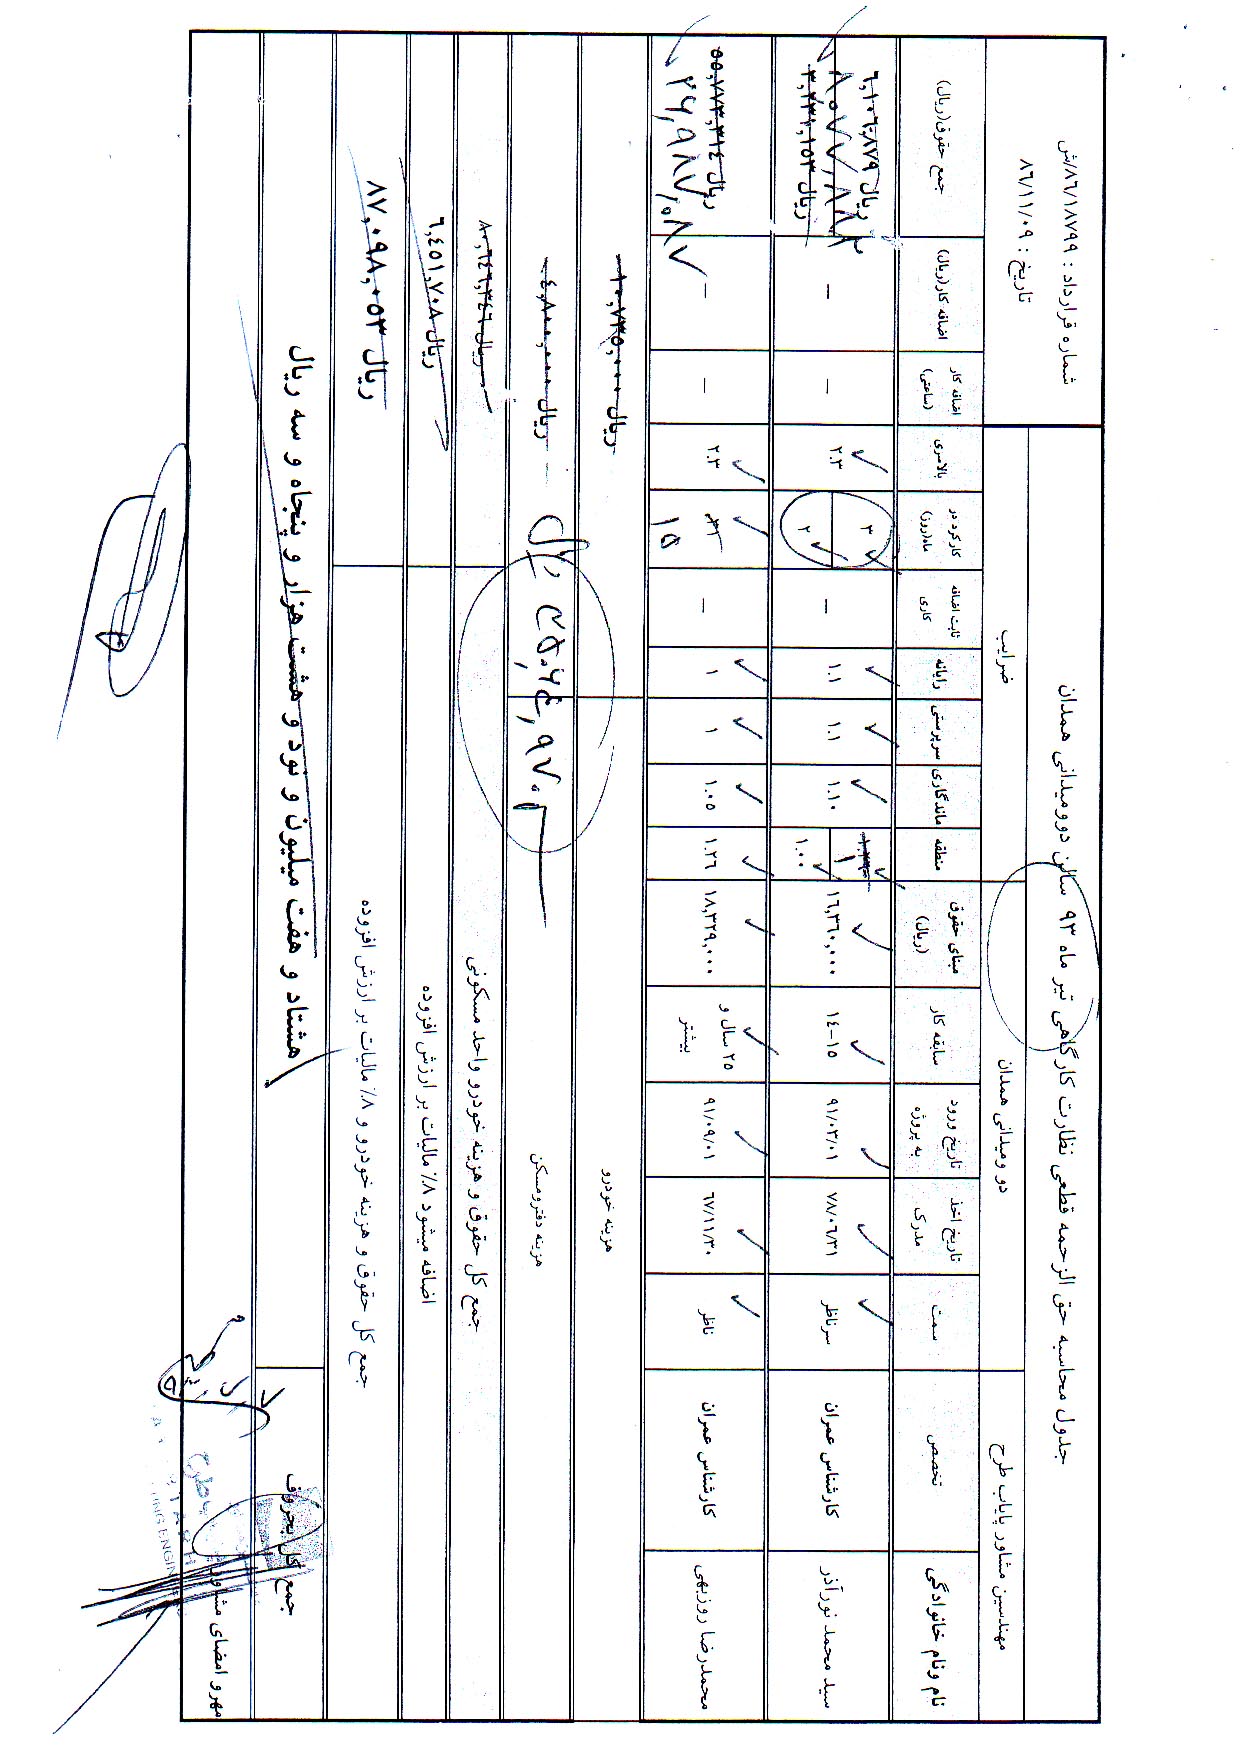 جدول محاسبه حق الزحمه قطعی نظارت کارگاهی تیر ماه ۹۳ سالن دوومیدانی همدان
شماره قرارداد : ۸۶/۱۸۷۹۹/ش
تاریخ : ۸۶/۱۱/۰۹
مهندسین مشاور پایاب طرح
دو ومیدانی همدان
ضرایب
نام ونام خانوادگی
تخصص
سمت
تاریخ اخذ مدرک
تاریخ ورود به پروژه
سابقه کار
مبنای حقوق (ریال)
منطقه
ماندگاری
سرپرستی
رایانه
ثابت اضافه کاری
کارکرد در ماه(روز)
بالاسری
اضافه کار (ساعتی)
اضافه کار(ریال)
جمع حقوق(ریال)
سید محمد نورآذر
کارشناس عمران
سرناظر
۷۸/۰۶/۳۱
۹۱/۰۳/۰۱
۱۴-۱۵
۱۶,۳۶۰,۰۰۰
۱
۱.۰۰
۱.۱۰
۱.۱
۱.۱
–
۳
۲
۲.۳
–
–
۶,۱۰۶,۸۷۹ ریال
۸۰۷۷,۸۸۲
۳,۲۳۱,۱۵۳ ریال
محمدرضا روزبهی
کارشناس عمران
ناظر
۶۷/۱۱/۳۰
۹۱/۰۹/۰۱
۲۵ سال و بیشتر
۱۸,۳۲۹,۰۰۰
۱.۲۶
۱.۰۵
۱
۱
–
۳۱
۱۵
۲.۳
–
–
۵۵,۷۷۳,۳۱۴ ریال
۲۶,۹۸۷,۰۸۷
هزینه خودرو
۱۰,۷۳۵,۰۰۰ ریال
هزینه دفترومسکن
۴,۸۰۰,۰۰۰ ریال
جمع کل حقوق و هزینه خودرو واحد مسکونی
۸۰,۶۴۶,۳۴۶ ریال
اضافه میشود ۸٪ مالیات بر ارزش افزوده
۶,۴۵۱,۷۰۸ ریال
جمع کل حقوق و هزینه خودرو و ۸٪ مالیات بر ارزش افزوده
۸۷,۰۹۸,۰۵۳ ریال
جمع کل بحروف
هشتاد و هفت میلیون و نود و هشت هزار و پنجاه و سه ریال
مهر و امضای مشاور